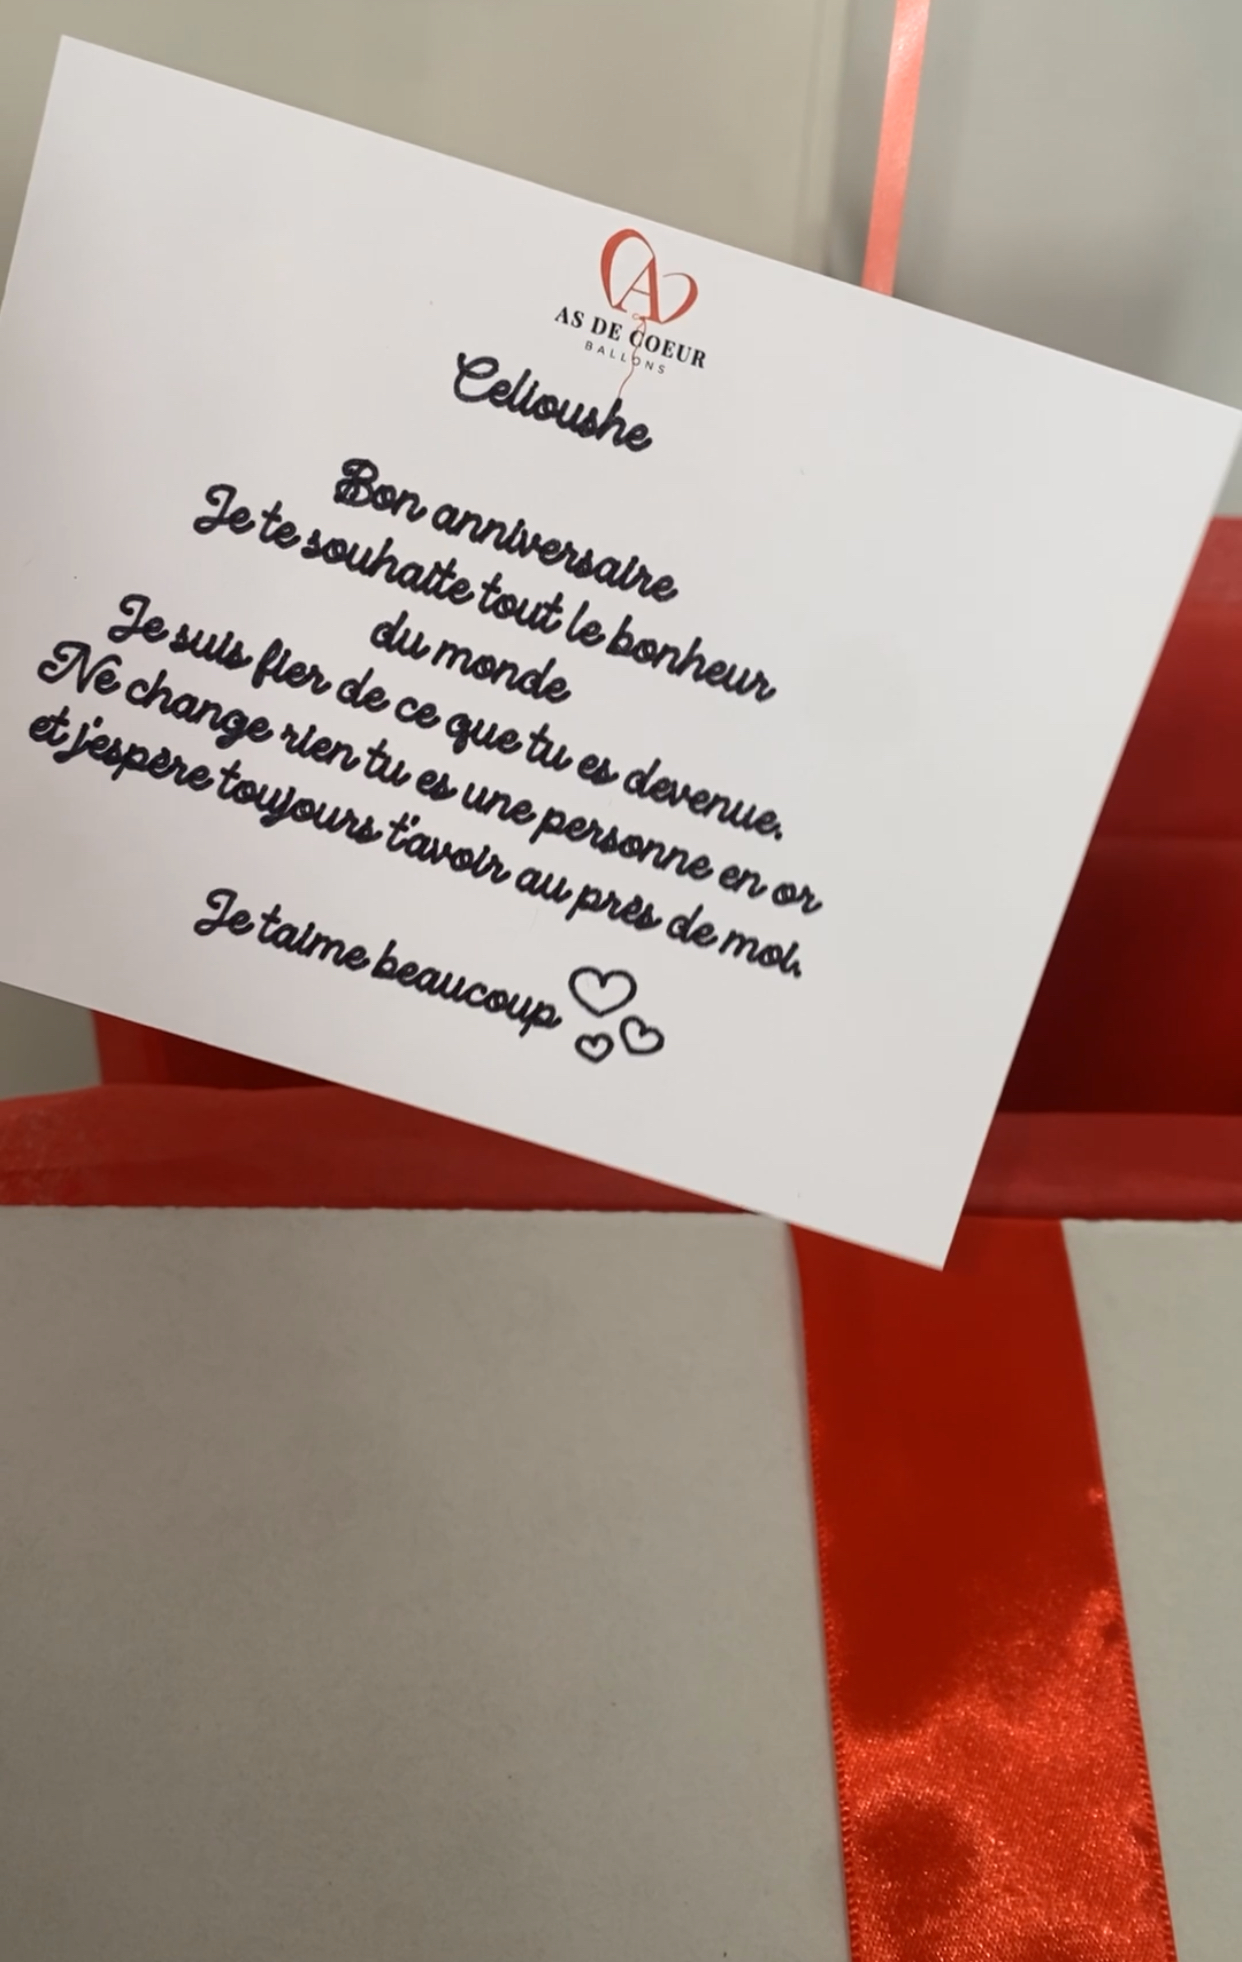 A
AS DE COEUR
BALLONS
Celioushe
Bon anniversaire
Je te souhaite tout le bonheur
du monde
Je suis fier de ce que tu es devenue.
Ne change rien tu es une personne en or
et j'espère toujours t'avoir au près de moi.
Je taime beaucoup